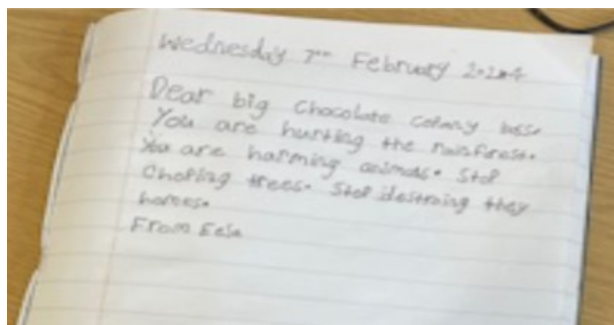 Wednesday 7th February 2024
Dear big chocolate comany boss.
You are hurting the rainforest.
You are harming animals. Stop
Choping trees. Stop destroing they
homes.
From Eesa